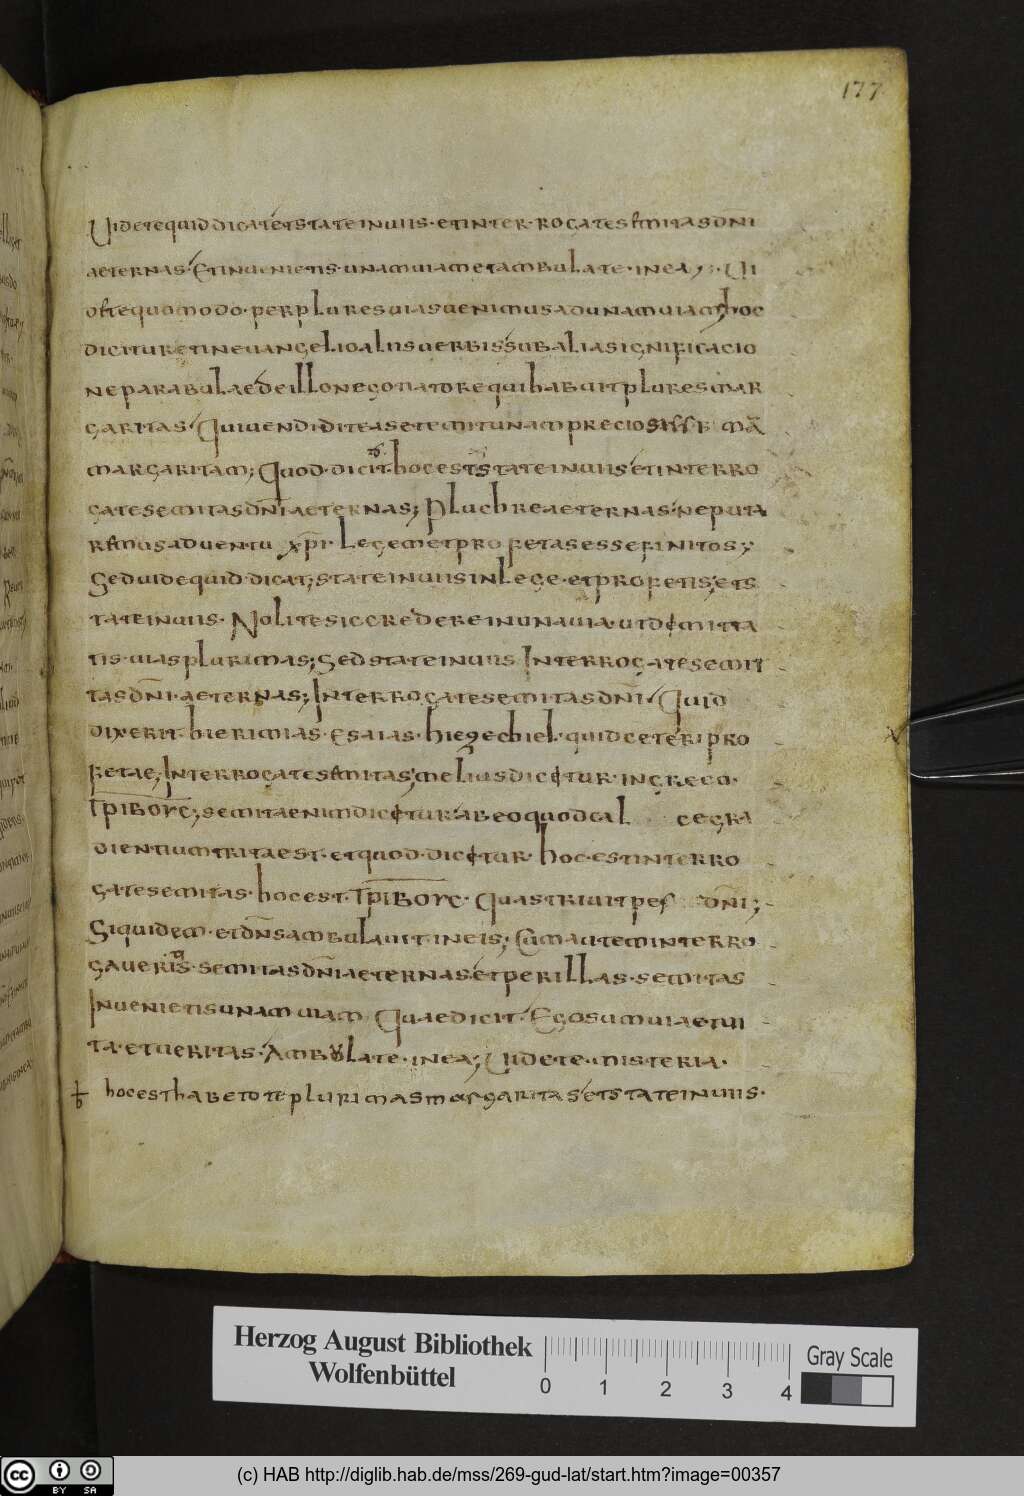 177
Uidete quid dicat et state in uiis · et inter · rogate semitas dñi
aeternas · Et inuenietis · unam uiam et ambulate · in ea ; · Ui
de quomodo · per plures uias uenimus ad unam uiam hoc
dicitur et in euangelio aliis uerbis sub alia significacio
ne parabulae de illo negotiatore qui habuit plures mar
garitas · Qui uendidit eas et emit unam preciosa
margaritam ; Quod · dicit · hoc est state in uiis et interro
gate semitas dñi aeternas ; Pluchre aeternas · ne puta
remus aduentu xp̄i · Legem et profetas esse finitos ;
Sed uide quid · dicat ; state in uiis in lege · et profetis ; et s
tate in uiis · Nolite sic credere in una uia · ut dimitta
tis · uias plurimas ; Sed state in uiis Interrogate semit
tas dñi · aeternas ; Interrogate semitas dñi · Quid
dixerit · hierimias · Esaias · hiezechiel · quid ceteri pro
fetae ; Interrogate semitas ; melius dicitur · in greco ·
ΤΡΙΒΟΥC ; semita enim dicitur ab eo quod cal cegra
dientium trita est · et quod · dicitur · hoc · est interro
gate semitas · hoc est · ΤΡΙΒΟΥC · Quas triuit pes dñi ;
Siquidem · et dñs ambulauit · in eis ; Cum autem interro
gaueris · semitas dñi aeternas et per illas · semitas
Inuenietis unam uiam Quae dicit · Ego sum uia et ui
ta · et ueritas · Ambulate · in ea ; Uidete · misteria ·
hoc est habeto te plurimas margaritas et state in uiis ·
Herzog August Bibliothek
Wolfenbüttel
0 1 2 3 4
Gray Scale
cc BY SA
(c) HAB http://diglib.hab.de/mss/269-gud-lat/start.htm?image=00357